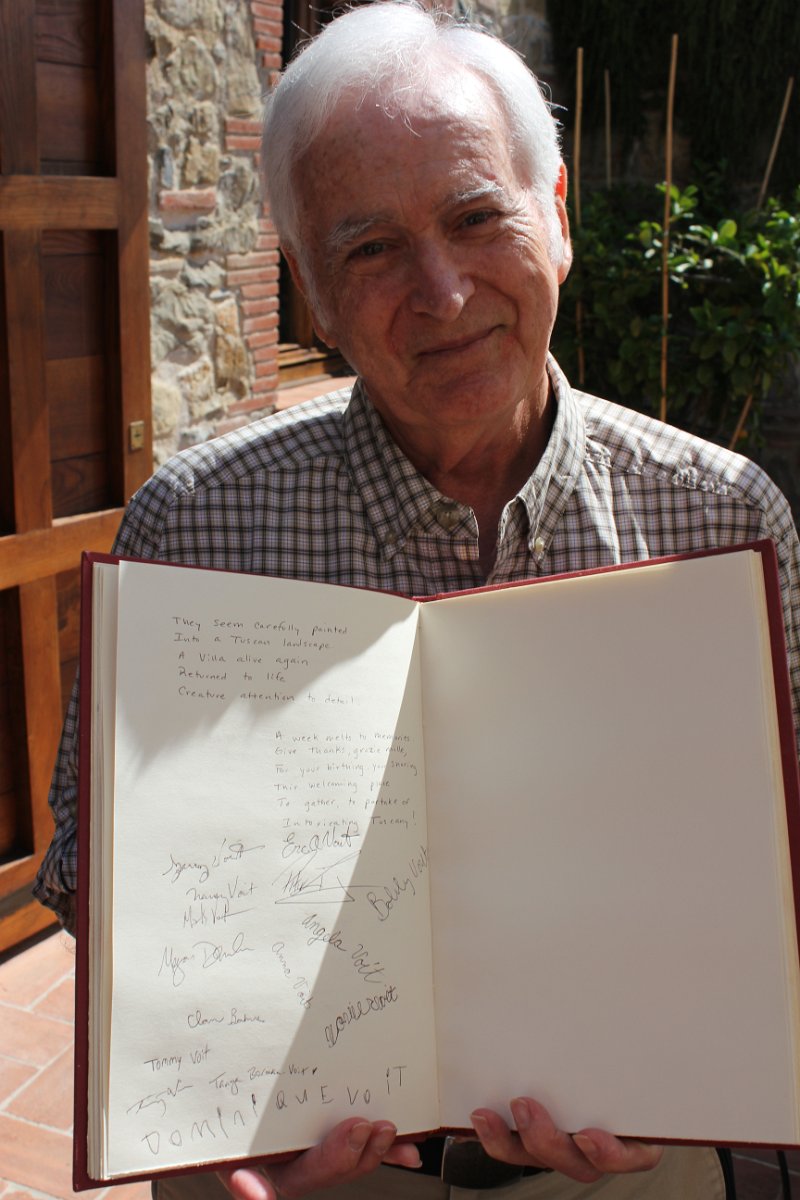 They seem carefully painted
Into a Tuscan landscape
A Villa alive again
Returned to life
Creature attention to detail
A week melts to memories
Give Thanks, grazie mille,
For your birthing you sharing
This welcoming place
To gather, to partake of
Intoxicating Tuscany!
Voit
Eric Voit
Nancy Voit
Mark Voit
Bobby Voit
Angela Voit
Anna Voit
Megan
Tommy Voit
Tanya Borman Voit
DOMINIQUE VOIT